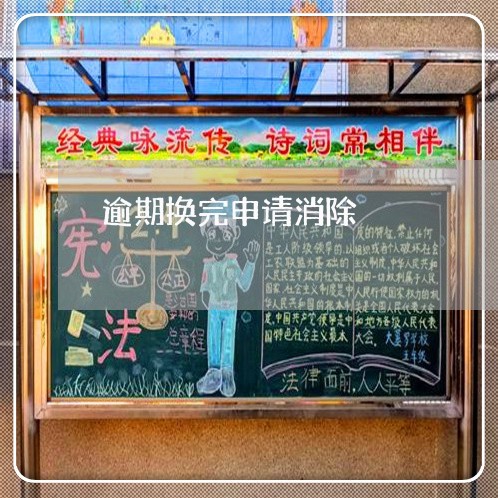 经典咏流传 诗词常相伴
逾期换完申请消除
宪法
公平 公正
总章程
中华人民共和国
是工人阶级领导的,以
工农联盟为基础的
人民民主专政的社会主义
国家,社会主义制度是中
华人民共和国的根本制
度,中国共产党领导是中
国特色社会主义最本
质的特征,禁止任何
组织或者个人破坏社会
主义制度,中华人民共和
国的一切权利属于人民,
人民行使国家权力的机
关是全国人民代表大会
和地方各级人民代表
大会。
学校
五年级
法律面前,人人平等